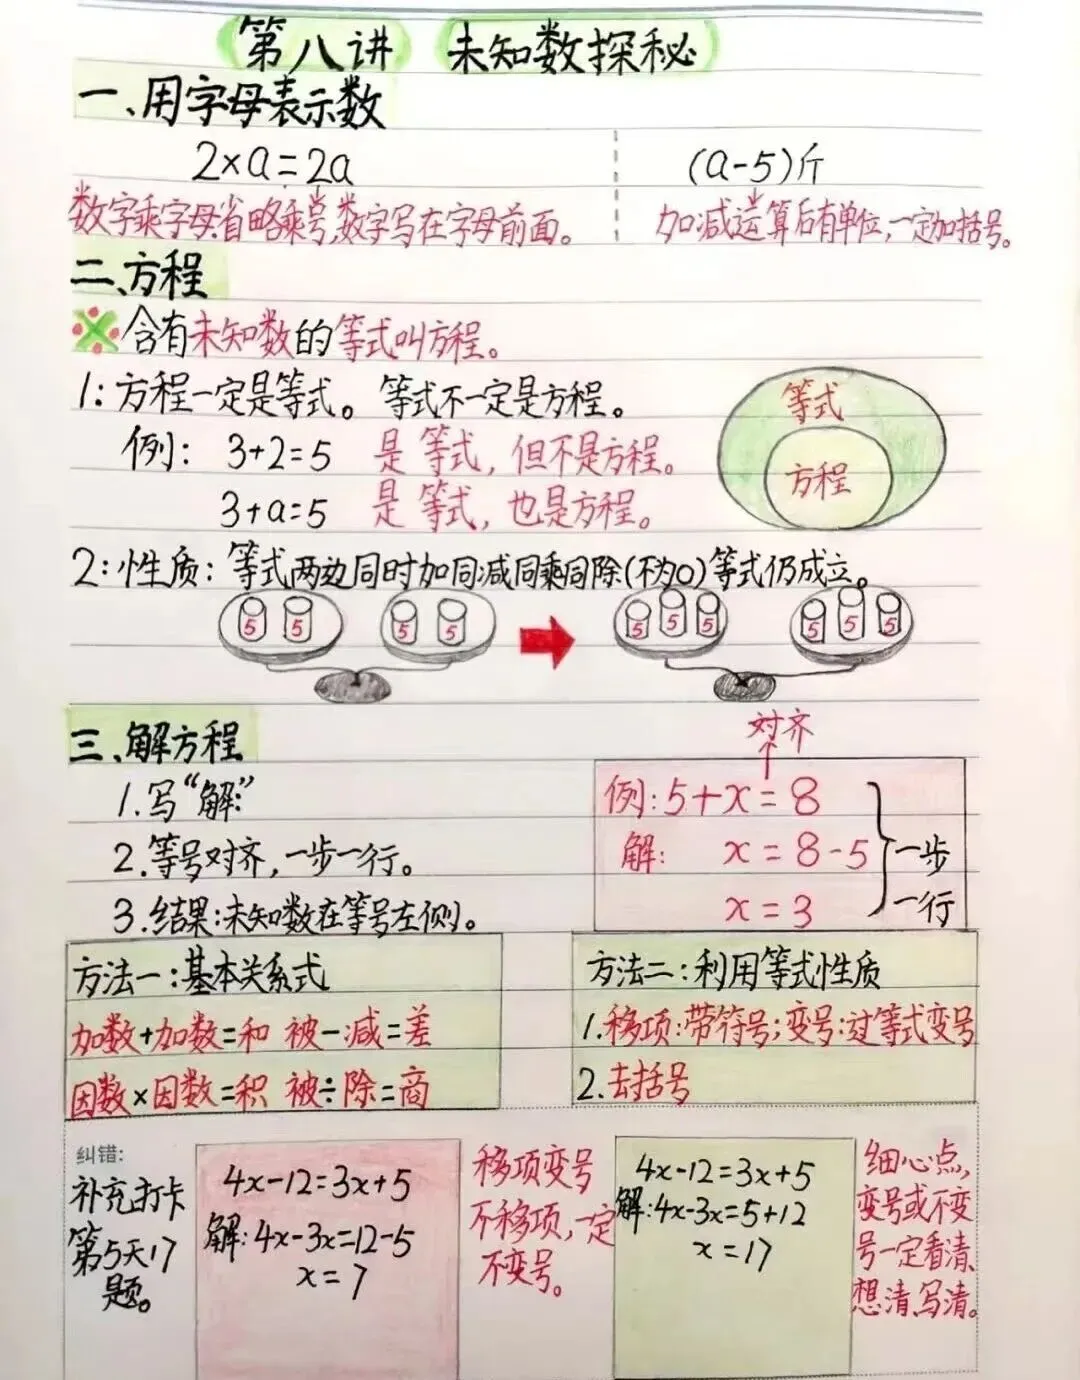 第八讲 未知数探秘
一、用字母表示数
2×a=2a
(a-5)斤
数字乘字母省略乘号,数字写在字母前面。
加减运算后有单位,一定加括号。
二、方程
※含有未知数的等式叫方程。
1:方程一定是等式。等式不一定是方程。
等式
方程
例: 3+2=5 是等式,但不是方程。
3+a=5 是等式,也是方程。
2:性质:等式两边同时加同减同乘同除(不为0)等式仍成立。
5 5 5 5 5 5 5 5 5 5
三、解方程
1.写“解:”
2.等号对齐,一步一行。
3.结果:未知数在等号左侧。
对齐
例:5+x=8
解: x=8-5
x=3
一步
一行
方法一:基本关系式
加数+加数=和 被-减=差
因数×因数=积 被÷除=商
方法二:利用等式性质
1.移项:带符号;变号:过等式变号
2.去括号
纠错:
补充打卡
第5天17
题。
4x-12=3x+5
解:4x-3x=12-5
x=7
移项变号
不移项,一定
不变号。
4x-12=3x+5
解:4x-3x=5+12
x=17
细心点,
变号或不变
号一定看清、
想清、写清。